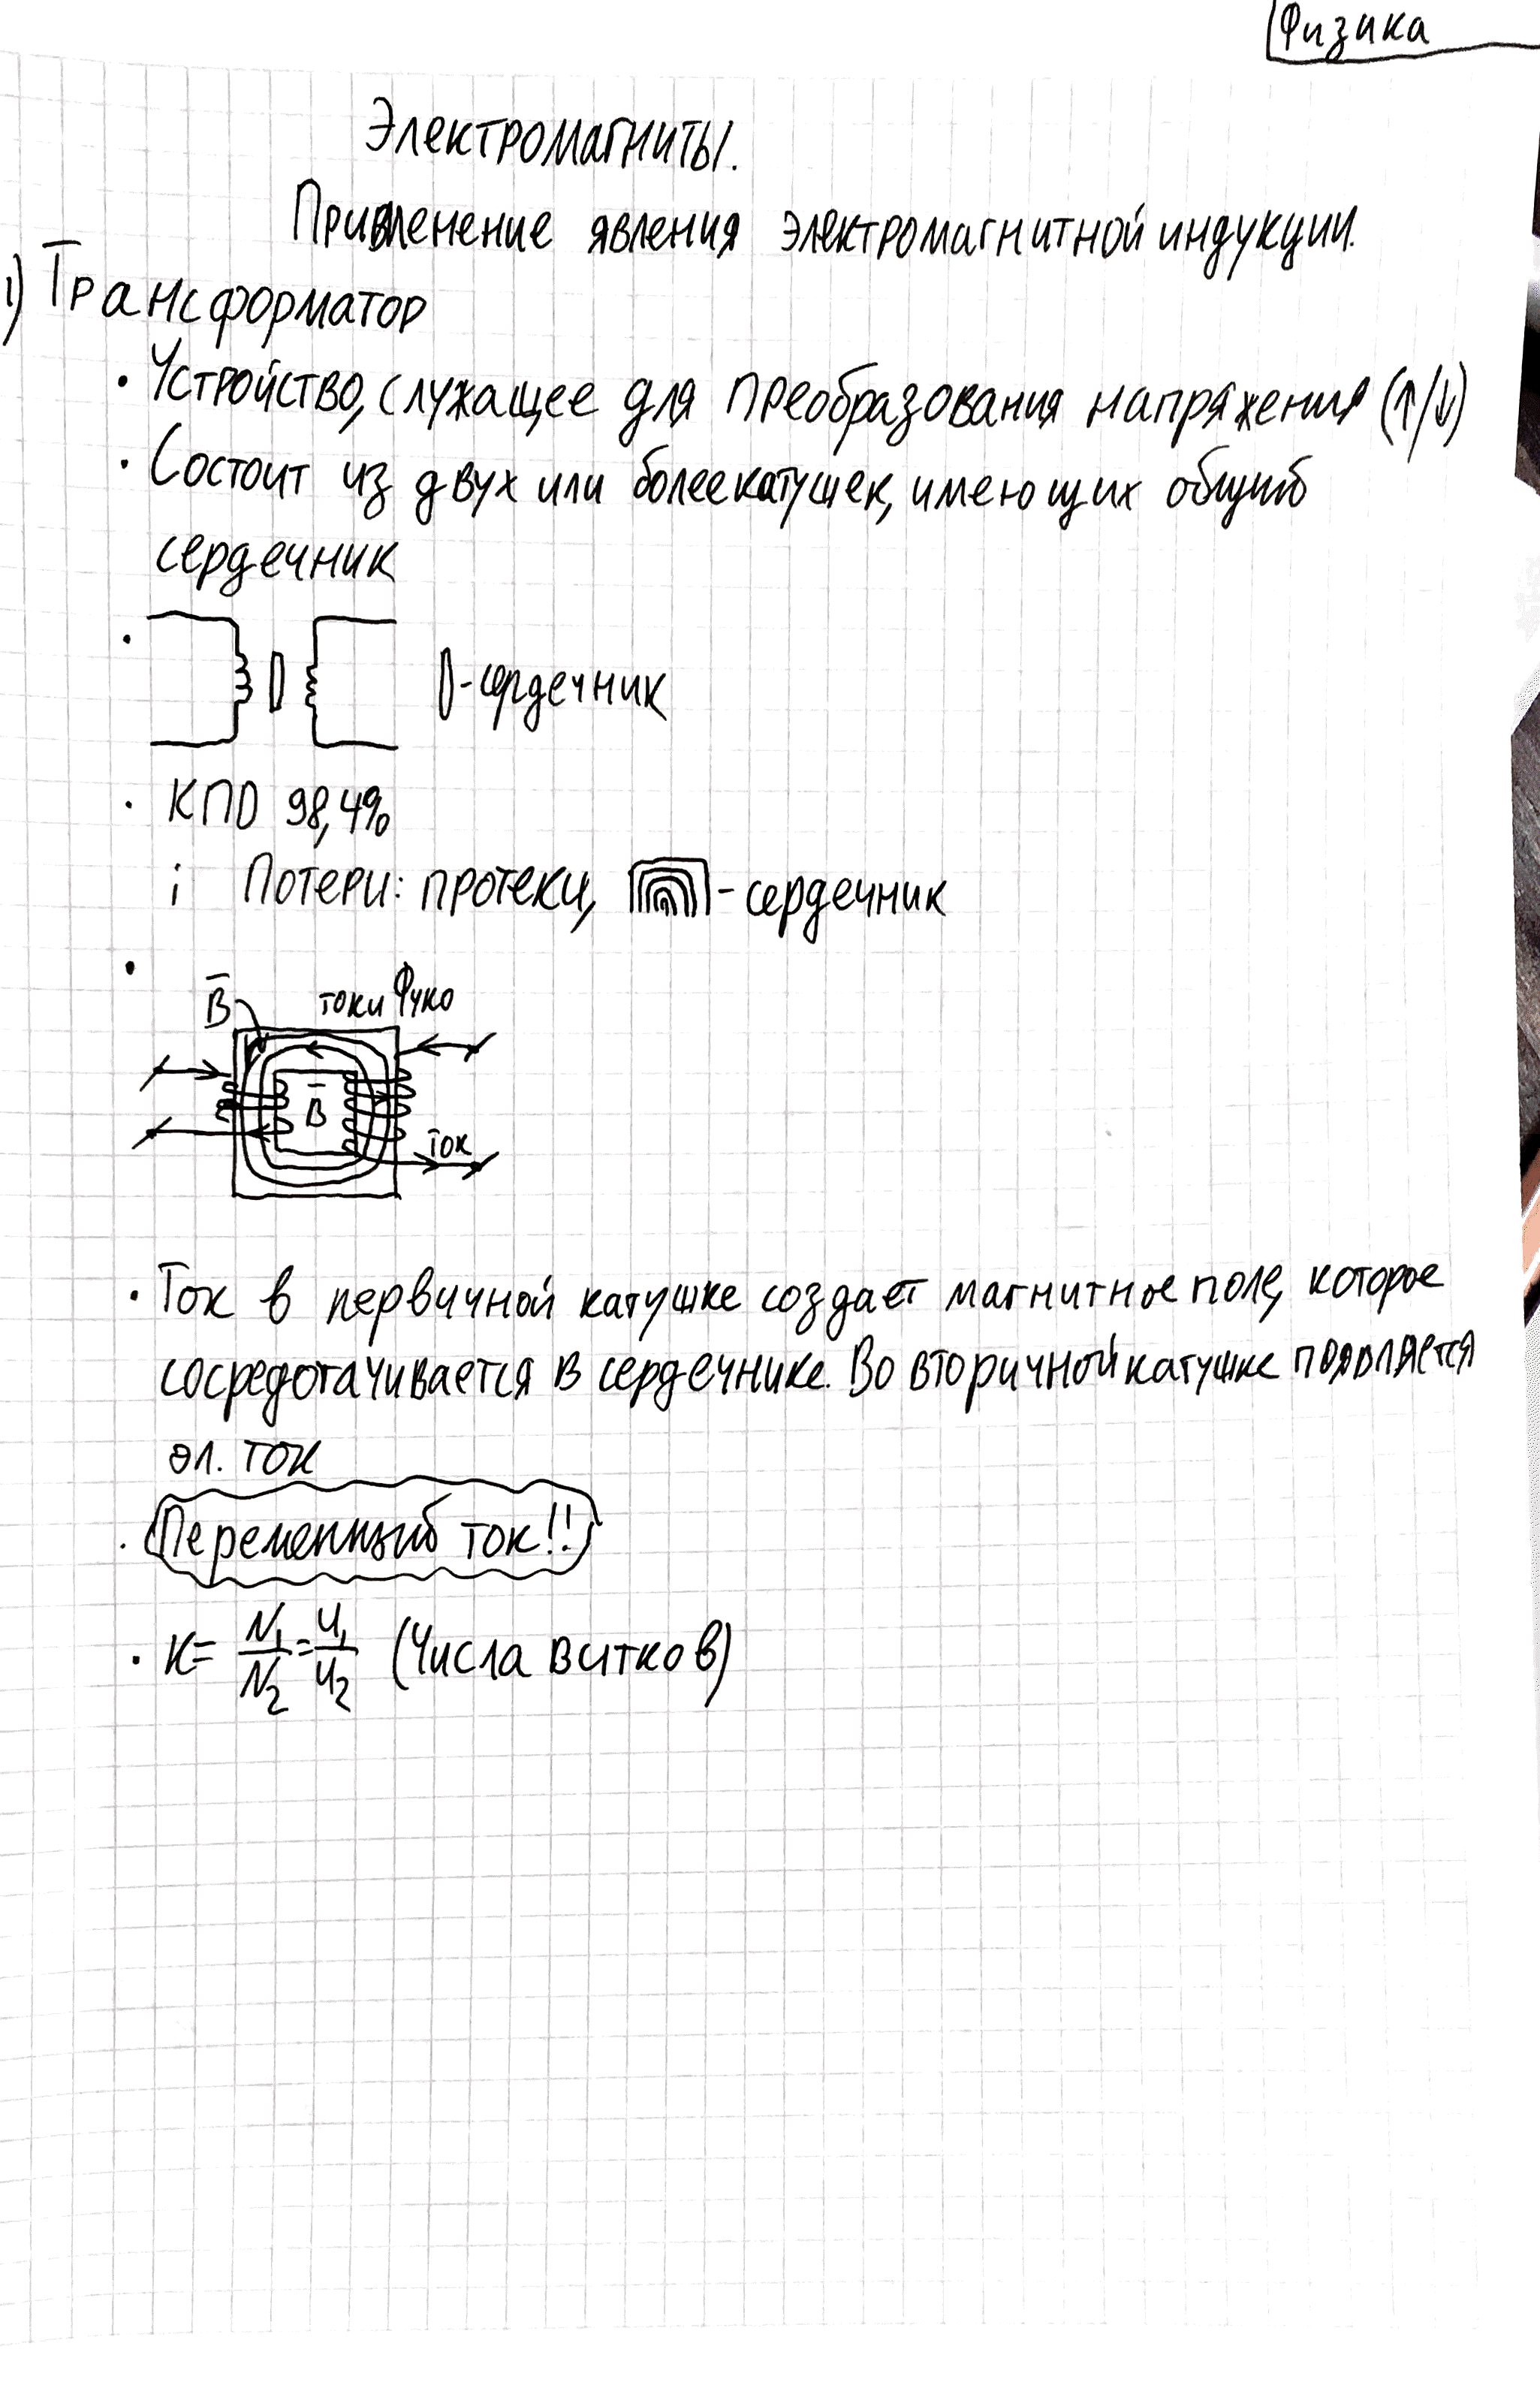 Физика
Электромагниты.
Применение явления электромагнитной индукции.
1) Трансформатор
• Устройство, служащее для преобразования напряжения (↑/↓)
• Состоит из двух или более катушек, имеющих общий
сердечник
- сердечник
• КПД 98,4%
i Потери: протеки, - сердечник
B токи Фуко
B
ток
• Ток в первичной катушке создает магнитное поле, которое
сосредотачивается в сердечнике. Во вторичной катушке появляется
эл. ток
• Переменный ток!!
• K = N₁/N₂ = U₁/U₂ (Числа витков)